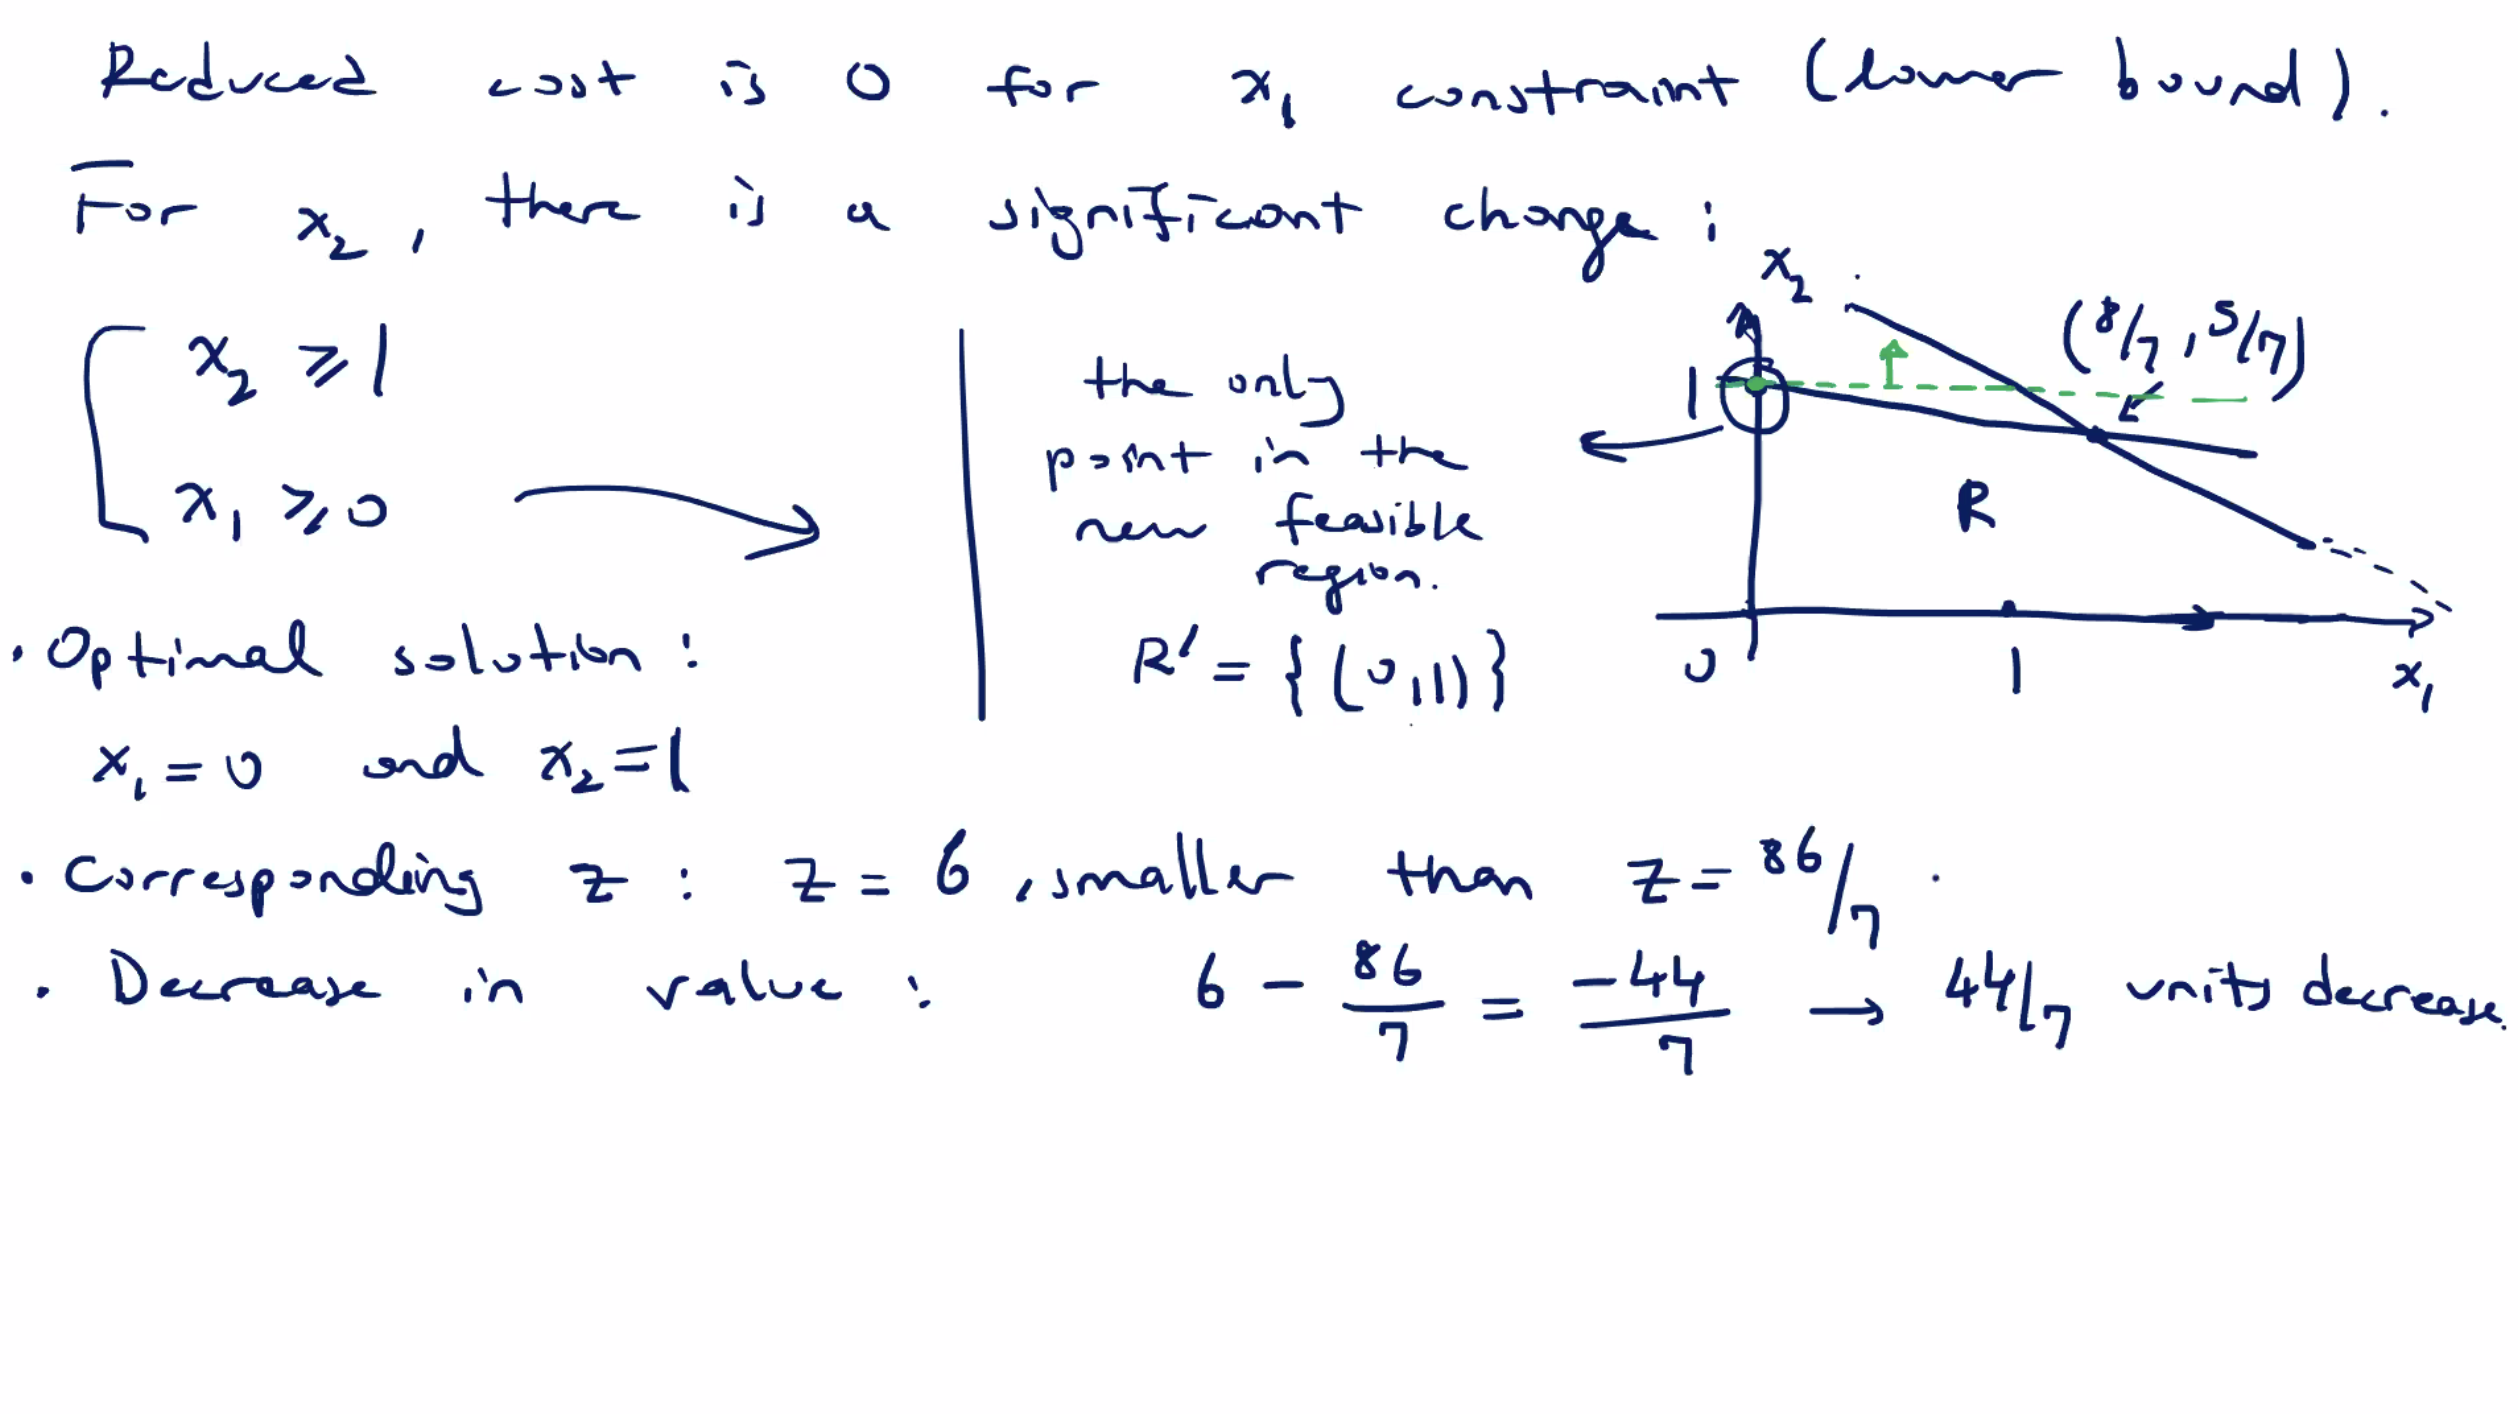 Reduced cost is 0 for x₁ constraint (lower bound).
For x₂, there is a significant change :
x₂ ≥ 1
x₁ ≥ 0
the only
point in the
new feasible
region.
R' = {(0,1)}
x₂
(8/7, 5/7)
1
R
0
1
x₁
• Optimal solution :
x₁ = 0 and x₂ = 1
• Corresponding z : z = 6, smaller than z = 86/7.
• Decrease in value : 6 - 86/7 = -44/7 → 44/7 units decrease.